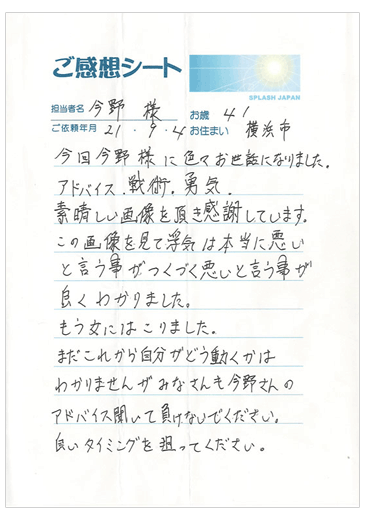 ご感想シート
SPLASH JAPAN
担当者名 今野 様 お歳 41
ご依頼年月 21.9.4 お住まい 横浜市
今回今野様に色々お世話になりました。
アドバイス.戦術.勇気.
素晴しい画像を頂き感謝しています。
この画像を見て浮気は本当に悪い
と言う事がつくづく悪いと言う事が
良くわかりました。
もう女にはこりました。
まだこれから自分がどう動くかは
わかりませんがみなさんも今野さんの
アドバイス聞いて負けないでください。
良いタイミングを狙ってください。